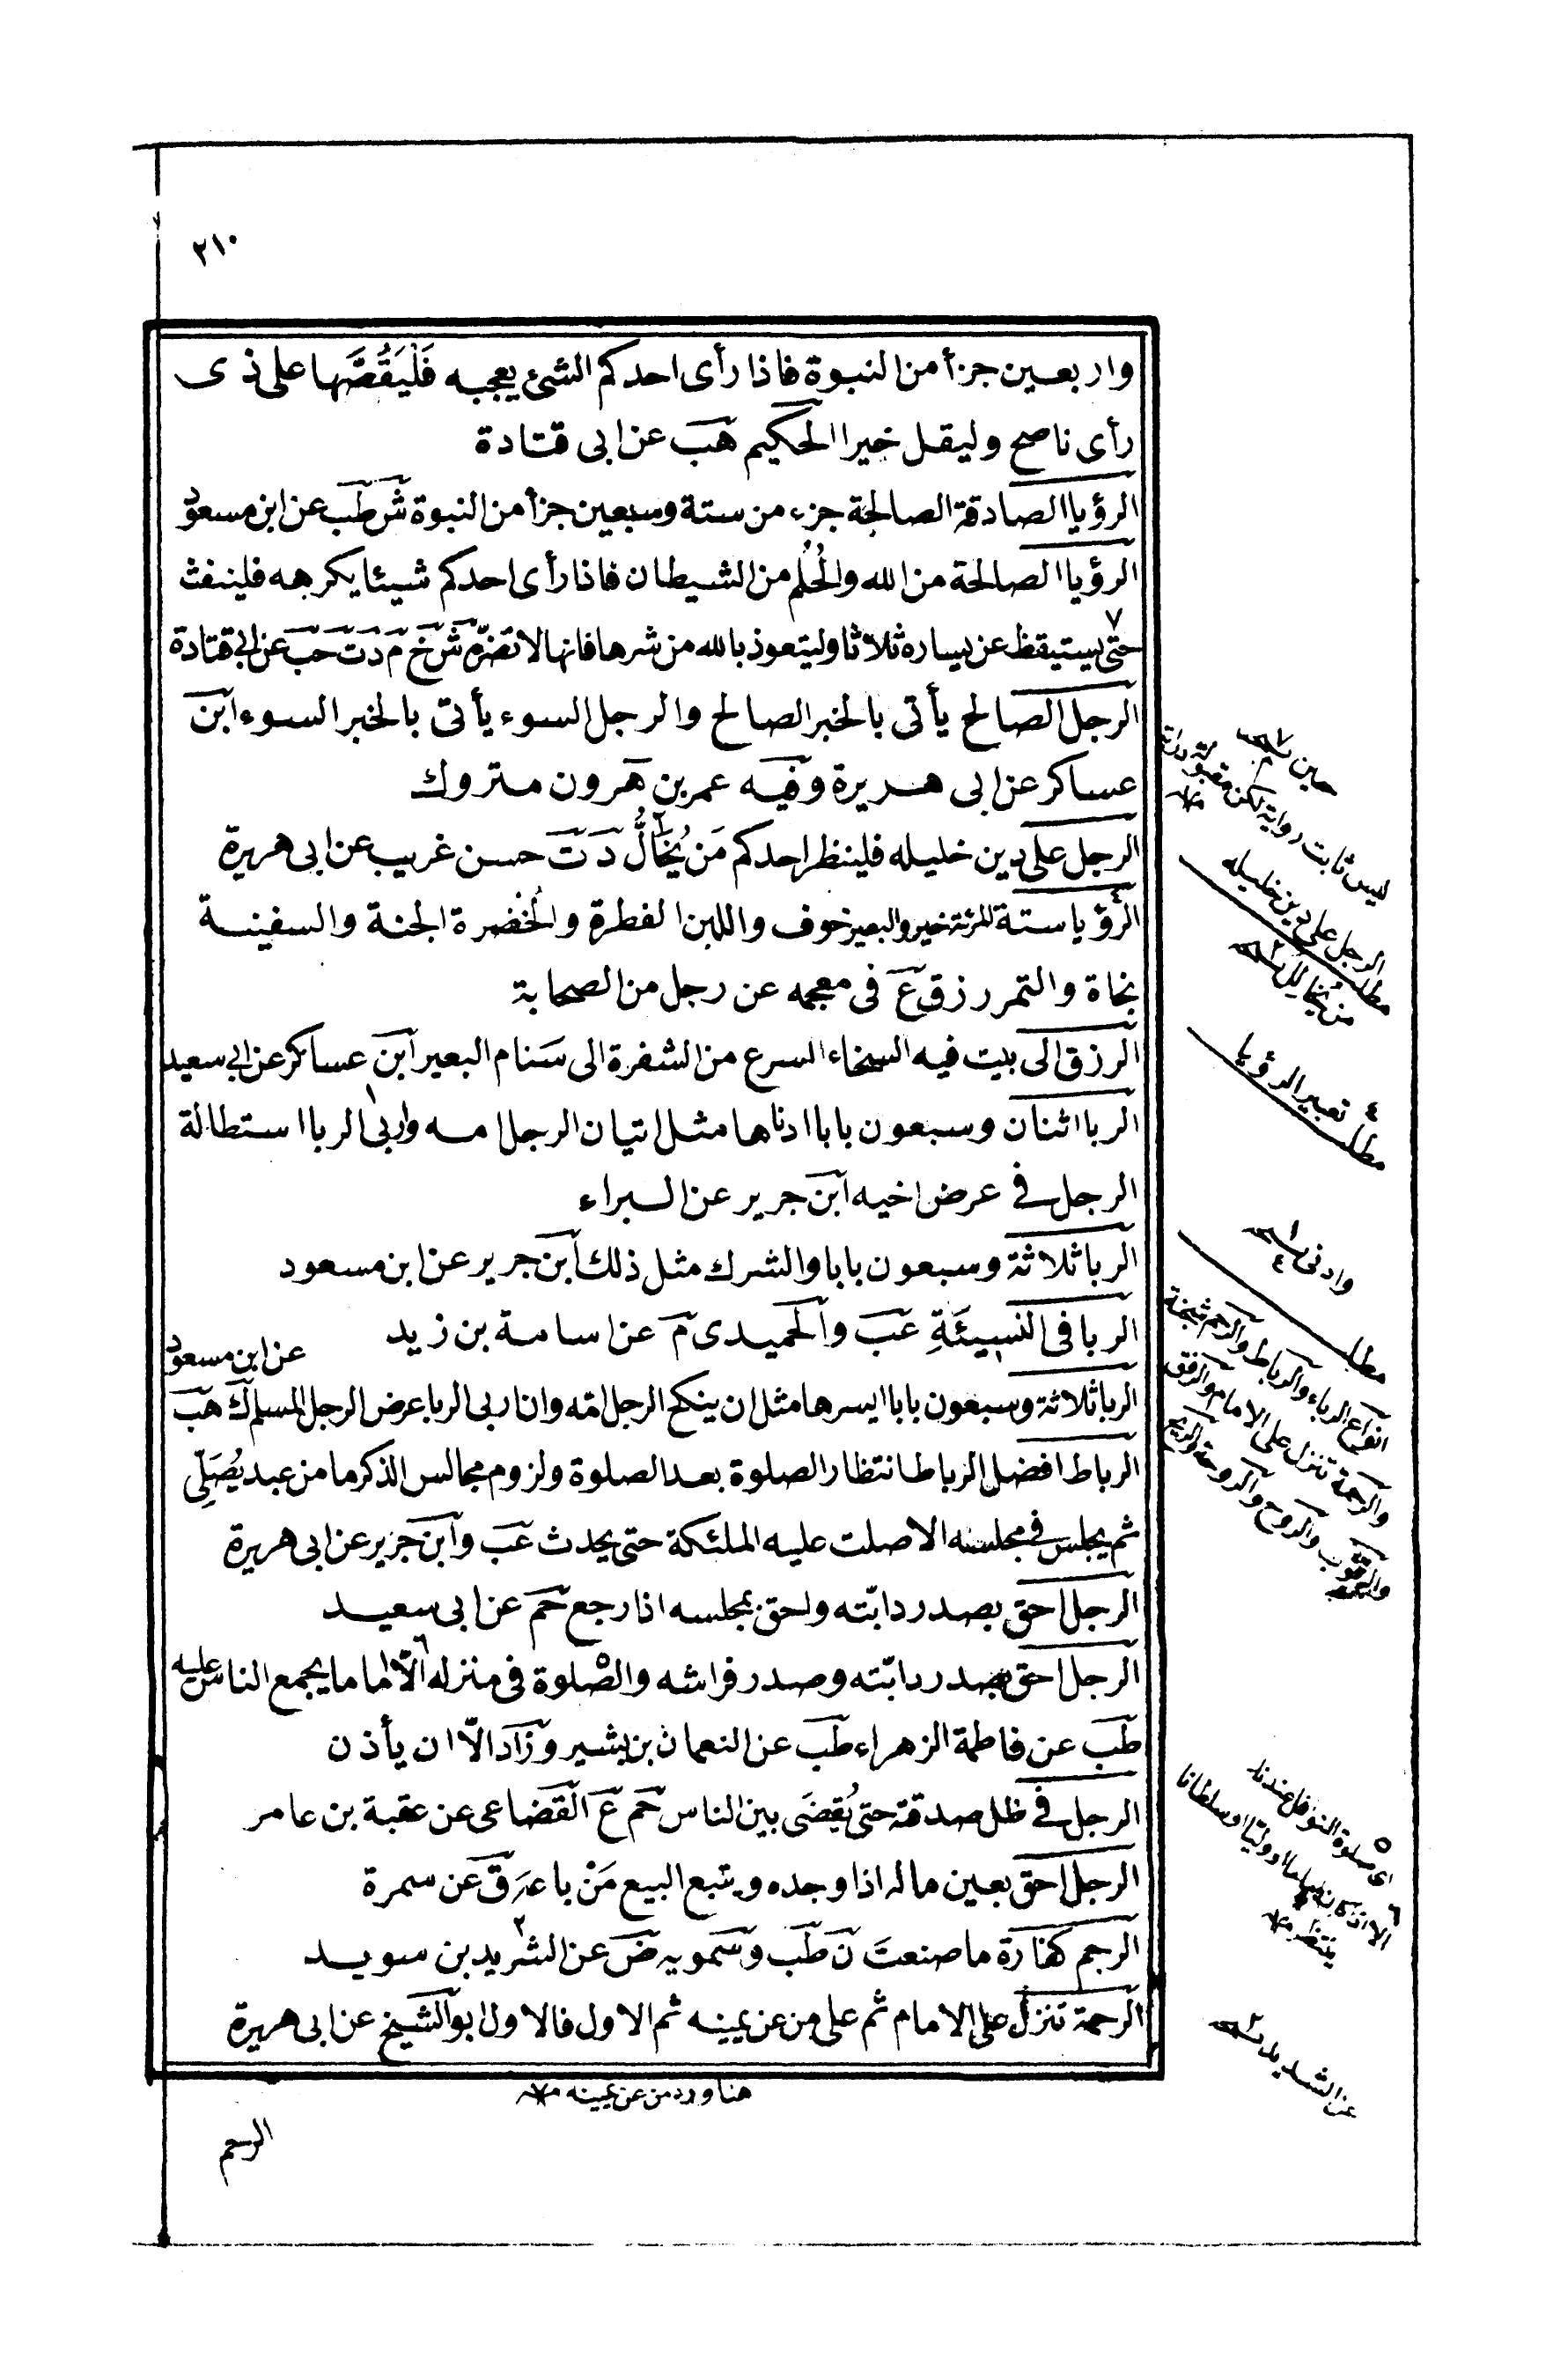 ٢١٠
واربعين جزأ من النبوة فاذا رأى احدكم الشئ يعجبه فَلْيَقُصَّها على ذى
رأى ناصح وليقل خيرا الحكيم هب عن ابى قتادة
الرؤيا الصادقة الصالحة جزء من ستة وسبعين جزأ من النبوة ش طب عن ابن مسعود
الرؤيا الصالحة من الله والحُلُم من الشيطان فاذا رأى احدكم شيئا يكرهه فلينفث
حتى يستيقظ ٧ عن يساره ثلاثا وليتعوذ بالله من شرها فانها لا تضرّه ش خ م د ت حب عن ابى قتادة
الرجل الصالح يأتى بالخبر الصالح والرجل السوء يأتى بالخبر السوء ابن
عساكر عن ابى هريرة وفيه عمر بن هرون متروك
الرجل على دين خليله فلينظر احدكم مَن يُخَالُّ ٢ د ت حسن غريب عن ابى هريرة
الرؤيا ٤ ستة المرئة خير والبعير خوف واللبن الفطرة والخُضرة الجنة والسفينة
نجاة والتمر رزق ع فى معجمه عن رجل من الصحابة
الرزق الى بيت فيه السخاء السرع من الشفرة الى سَنام البعير ابن عساكر عن ابى سعيد
الربا اثنان وسبعون بابا ادناها مثل اتيان الرجل امه واربى ١ الربا استطالة
الرجل فى عرض اخيه ابن جرير عن البراء
الربا ثلاثة وسبعون بابا والشرك مثل ذلك ابن جرير عن ابن مسعود
الربا فى النسيئَةِ عب والحميدى م عن اسامة بن زيد
عن ابن مسعود
الربا ثلاثة وسبعون بابا ايسرها مثل ان ينكح الرجل امّه وان اربى الربا عرض الرجل المسلم ك هب
الرباط افضل الرباط انتظار الصلوة بعد الصلوة ولزوم مجالس الذكر ما من عبد يُصَلِّى
ثم يجلس فى مجلسه الا صلت عليه الملئكة حتى يحدث عب وابن جرير عن ابى هريرة
الرجل احق بصدر دابّته واحق بمجلسه اذا رجع حم عن ابى سعيد
الرجل احق بصدر دابّته وصدر فراشه والصلوة ٥ فى منزله الّا ٦ اماما يجمع الناس عليه
طب عن فاطمة الزهراء طب عن النعمان بن بشير وزاد الّا ان يأذن
الرجل فى ظل صدقته حتى يُقضَى بين الناس حم ع القضاعى عن عقبة بن عامر
الرجل احق بعين ماله اذا وجده ويتبع البيع مَنْ باعه ق عن سمرة
الرجم كفارة ما صنعتَ ن طب وسمويه ض عن الشريد ٢ بن سويد
الرحمة تنزل على الامام ثم على من عن يمينه ثم الاول فالاول ابو الشيخ عن ابى هريرة
حين ٧
ليس ثابت رواية لكن مقبولة دراية
مطلب الرجل على دين خليله
من يُخَالِل ٢
٤ مطلب تعبير الرؤيا
وادنى ١
مطلب ٤
انواع الرباء والرباط والرحم شجنة
والرحمة تنزل على الامام والرفق
والرقوب والروح والروحة والريح
٥ اى صلوة النوافل عندنا
٦ الا ان يكون اماما او وليّا او سلطانا
ينتظر
عن الشديد ٢
هنا ورد من عن يمينه
الرحم